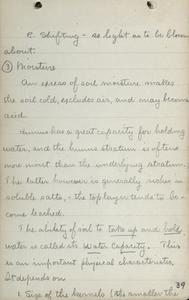 c. Shifting - so light as to be blown
about.
③ Moisture
An excess of soil moisture makes
the soil cold, excludes air, and may become
acid.
Humus has a great capacity for holding
water, and the humus stratum is often
more moist than the underlying stratum.
The latter however is generally richer in
soluble salts, - the top layer tends to be-
come leached.
The ability of soil to take up and hold
water is called its Water Capacity. This
is an important physical characteristic.
It depends on
1. Size of the kernels (the smaller the
39